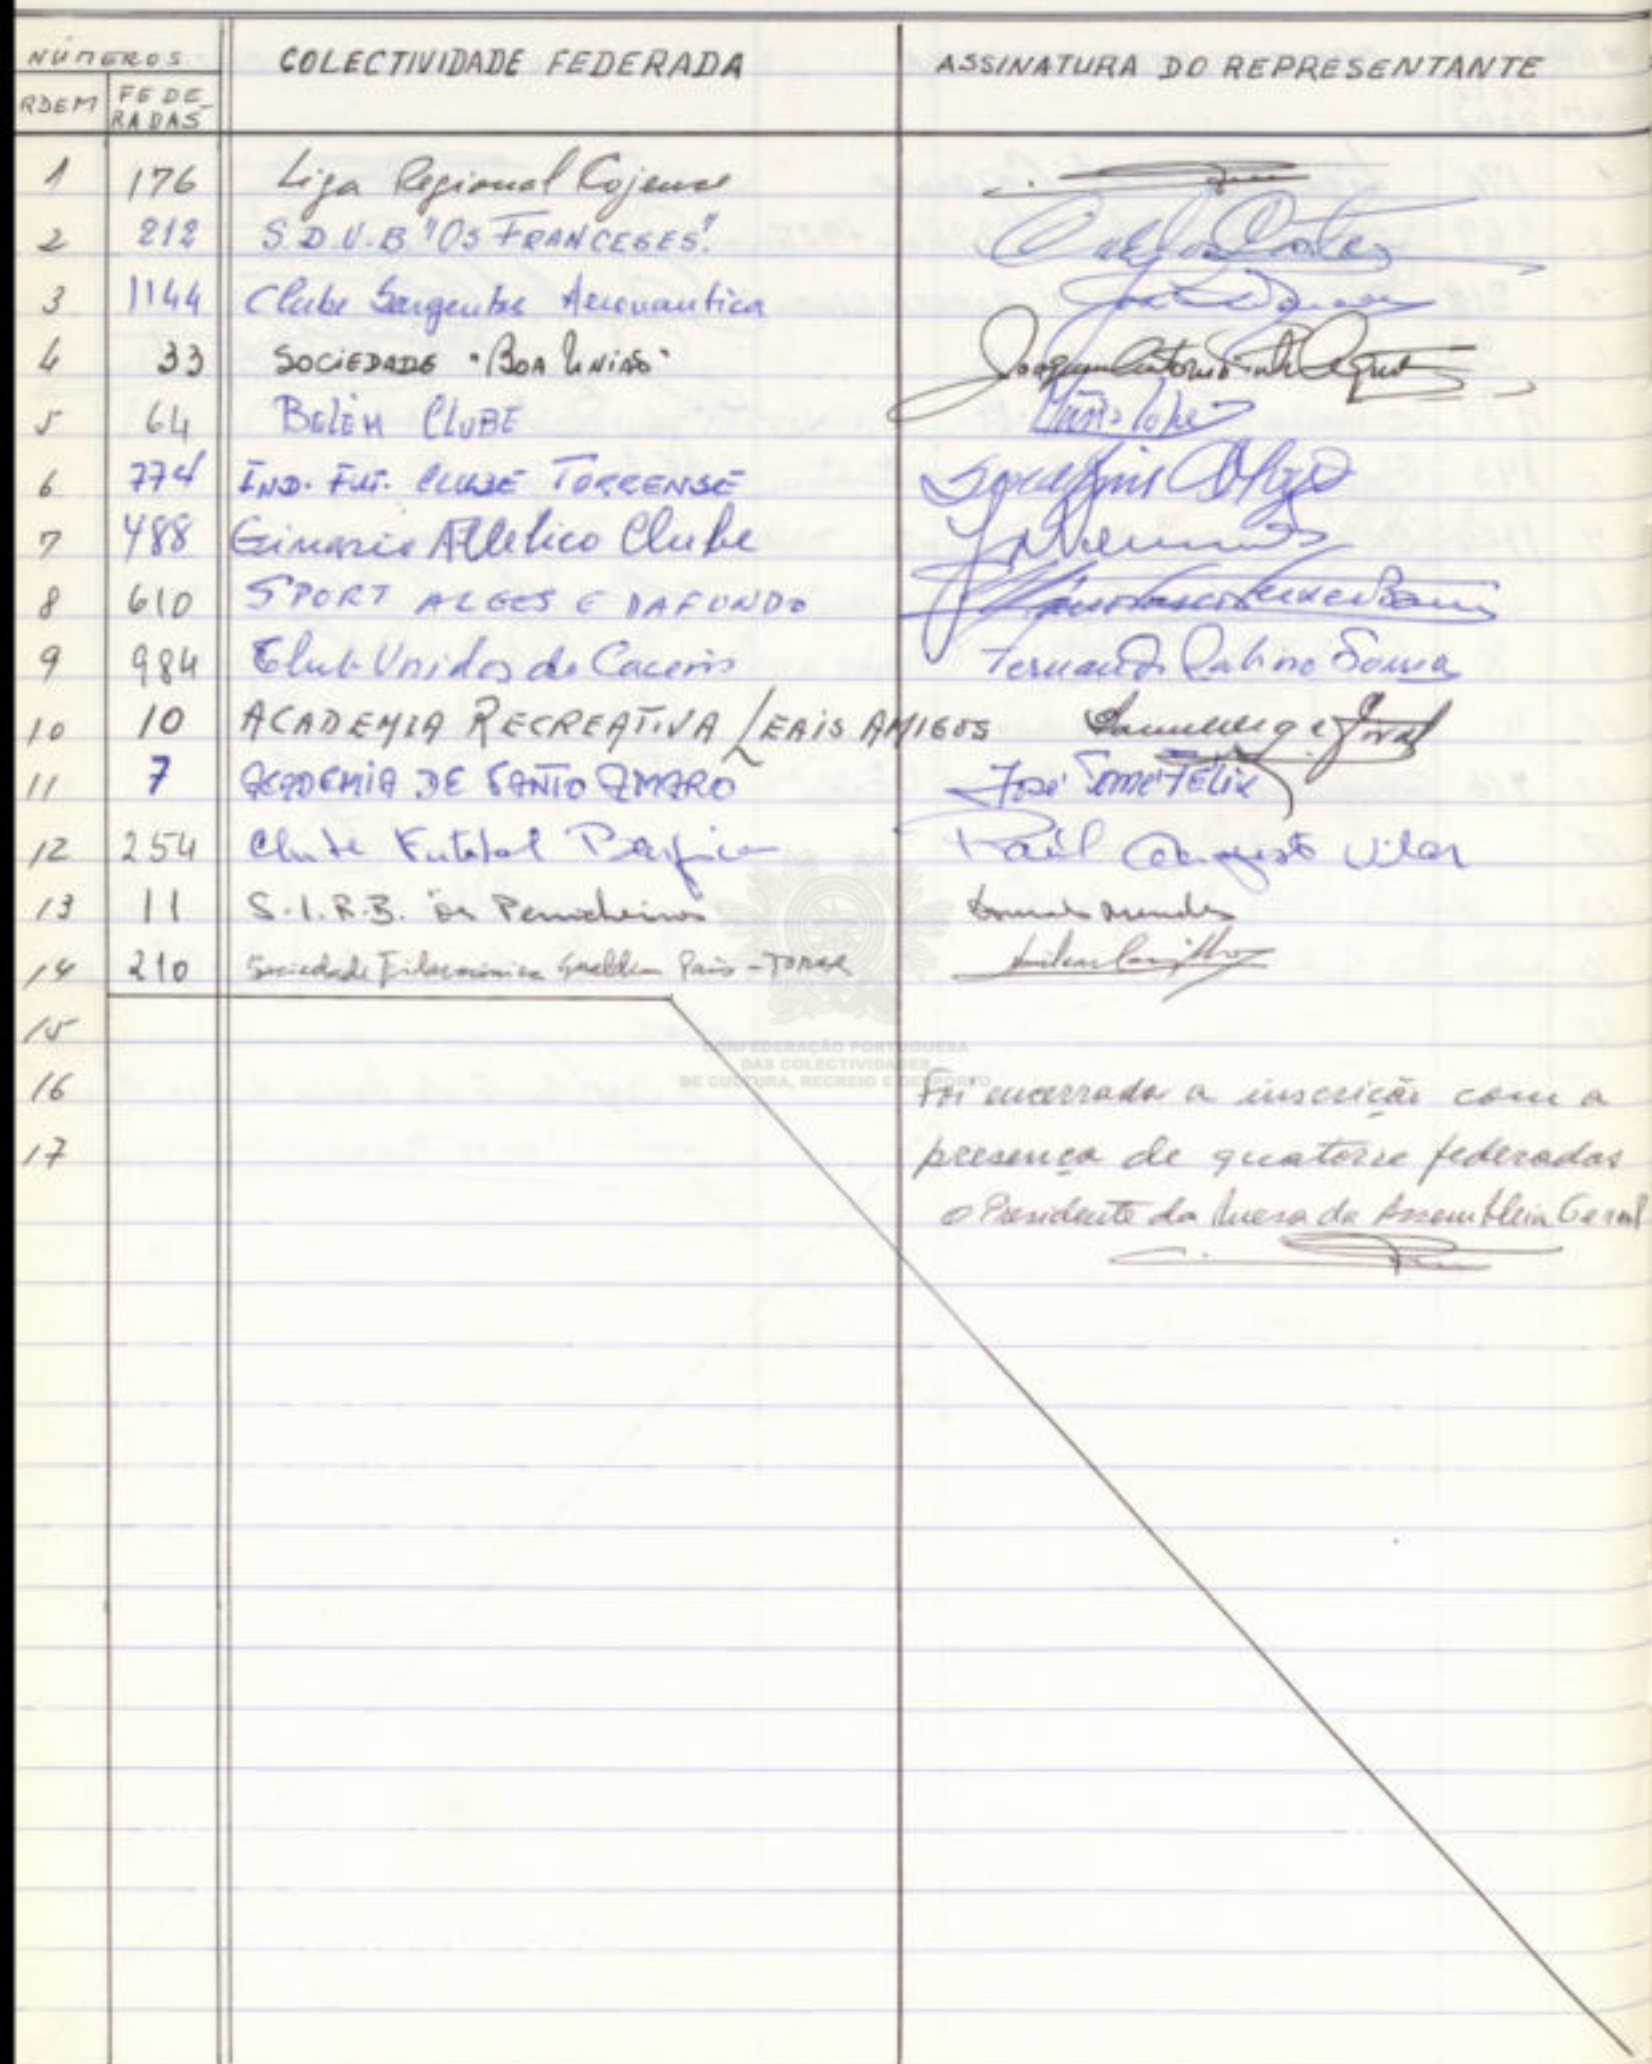 NÚMEROS COLECTIVIDADE FEDERADA ASSINATURA DO REPRESENTANTE
RDEM FEDERADAS
1 176 Liga Regional Cojense
2 212 S.D.U.B "OS FRANCESES".
3 1144 Clube Sargentos Aeronautica
4 33 SOCIEDADE "BOA UNIÃO"
5 64 BELÉM CLUBE Mário Lopes
6 774 IND. FUT. CLUBE TORRENSE
7 488 Ginasio Atletico Clube
8 610 SPORT ALGES E DAFUNDO
9 984 Club Unidos do Fernando Sousa
10 10 ACADEMIA RECREATIVA LEAIS AMIGOS
11 7 ACADEMIA DE SANTO AMARO José Félix
12 254 Clube Futebol Raúl Augusto Vilar
13 11 S.I.R.B. Os Penicheiros Mendes
14 210 Sociedade Filarmónica Gualdim Pais - TOMAR
15
CONFEDERAÇÃO PORTUGUESA
DAS COLECTIVIDADES
DE CULTURA, RECREIO E DESPORTO
16 Foi encerrada a inscrição com a
17 presença de quatorze federadas
o Presidente da Mesa da Assembleia Geral